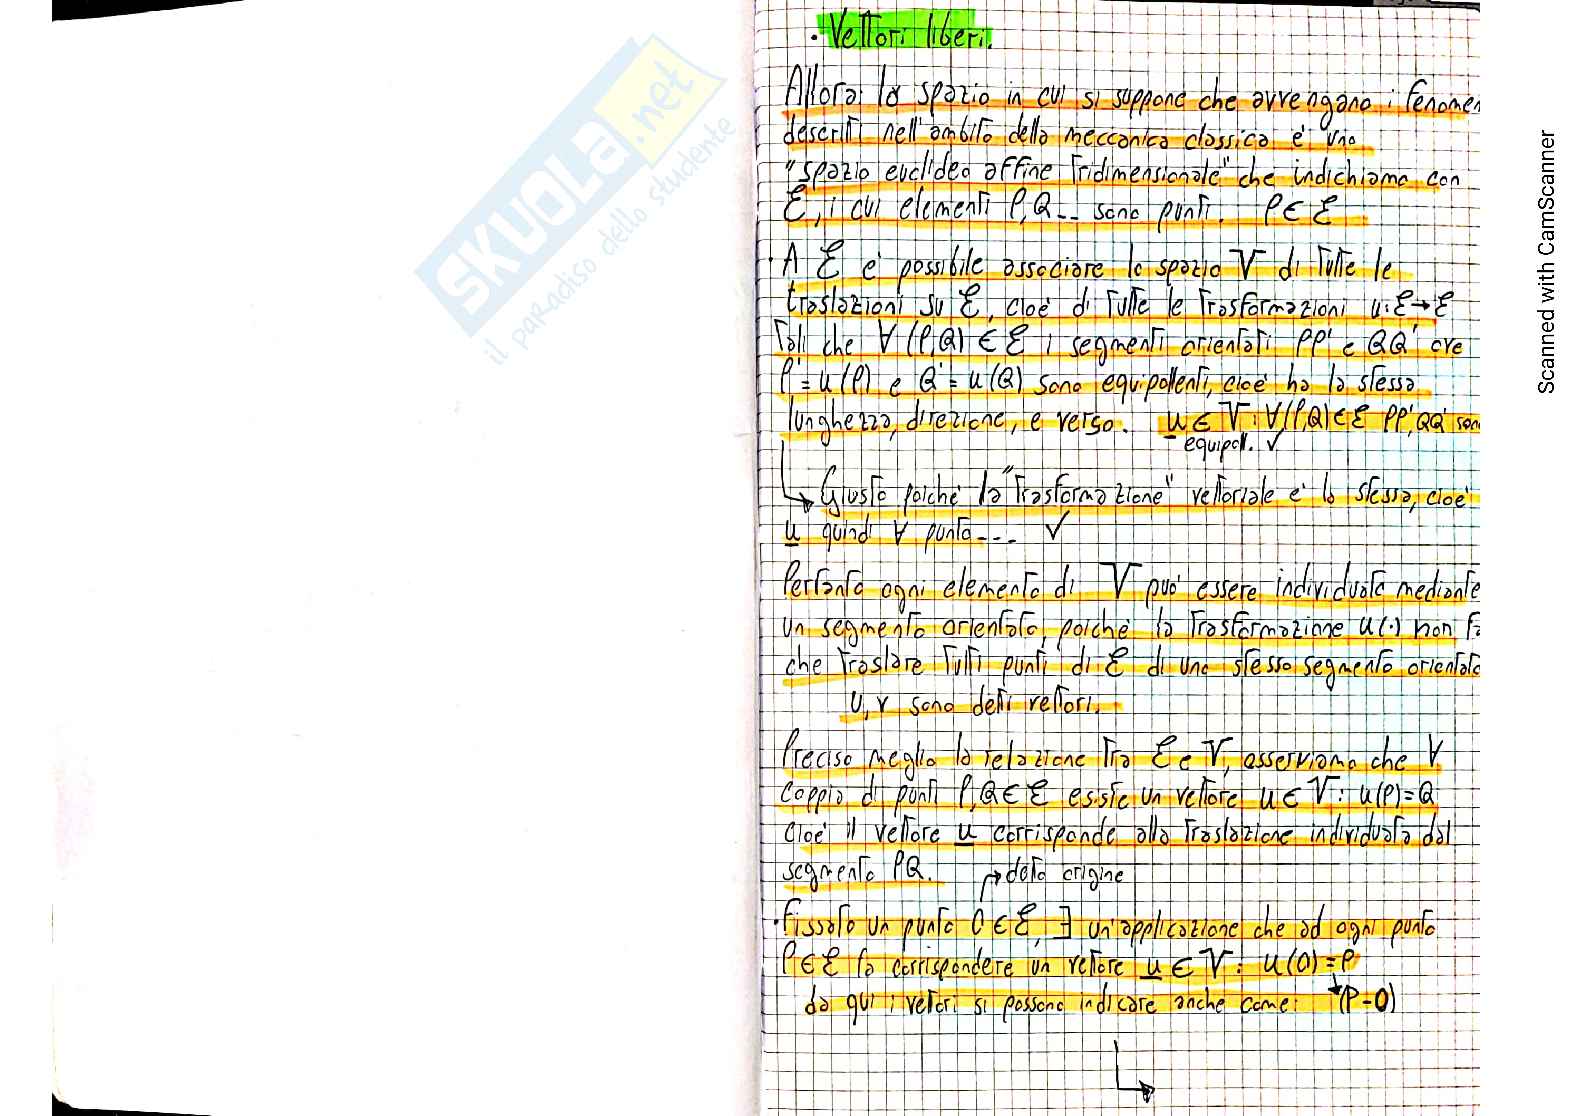 • Vettori liberi.
Allora lo spazio in cui si suppone che avvengano i fenomen
descritti nell'ambito della meccanica classica è uno
"spazio euclideo affine tridimensionale" che indichiamo con
ℰ, i cui elementi P,Q... sono punti. P∈ℰ
• A ℰ è possibile associare lo spazio V di tutte le
traslazioni su ℰ, cioè di tutte le trasformazioni u:ℰ→ℰ
tali che ∀(P,Q)∈ℰ i segmenti orientati PP' e QQ' ove
P'=u(P) e Q'=u(Q) sono equipollenti, cioè ha la stessa
lunghezza, direzione, e verso. u∈V: ∀(P,Q)∈ℰ PP',QQ' son
equipoll. ✓
↳ Giusto poiché la "trasformazione" vettoriale è la stessa, cioè
u quindi ∀ punto... ✓
Pertanto ogni elemento di V può essere individuato mediante
un segmento orientato, poiché la trasformazione u(·) non fa
che traslare tutti punti di ℰ di uno stesso segmento orientato
u,v sono detti vettori.
Preciso meglio la relazione tra ℰ e V, osserviamo che ∀
coppia di punti P,Q∈ℰ esiste un vettore u∈V: u(P)=Q
cioè il vettore u corrisponde alla traslazione individuata dal
segmento PQ. → detto origine
• Fissato un punto O∈ℰ, ∃ un'applicazione che ad ogni punto
P∈ℰ fa corrispondere un vettore u∈V: u(O)=P
da qui i vettori si possono indicare anche come: (P-O)
SKUOLA.net
il paradiso dello studente
Scanned with CamScanner